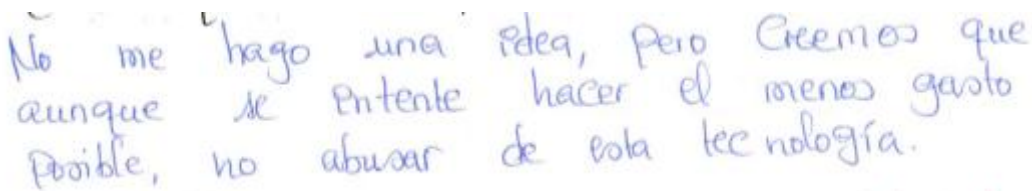 No me hago una idea, pero Creemos que
aunque se intente hacer el menos gasto
posible, no abusar de esta tecnología.